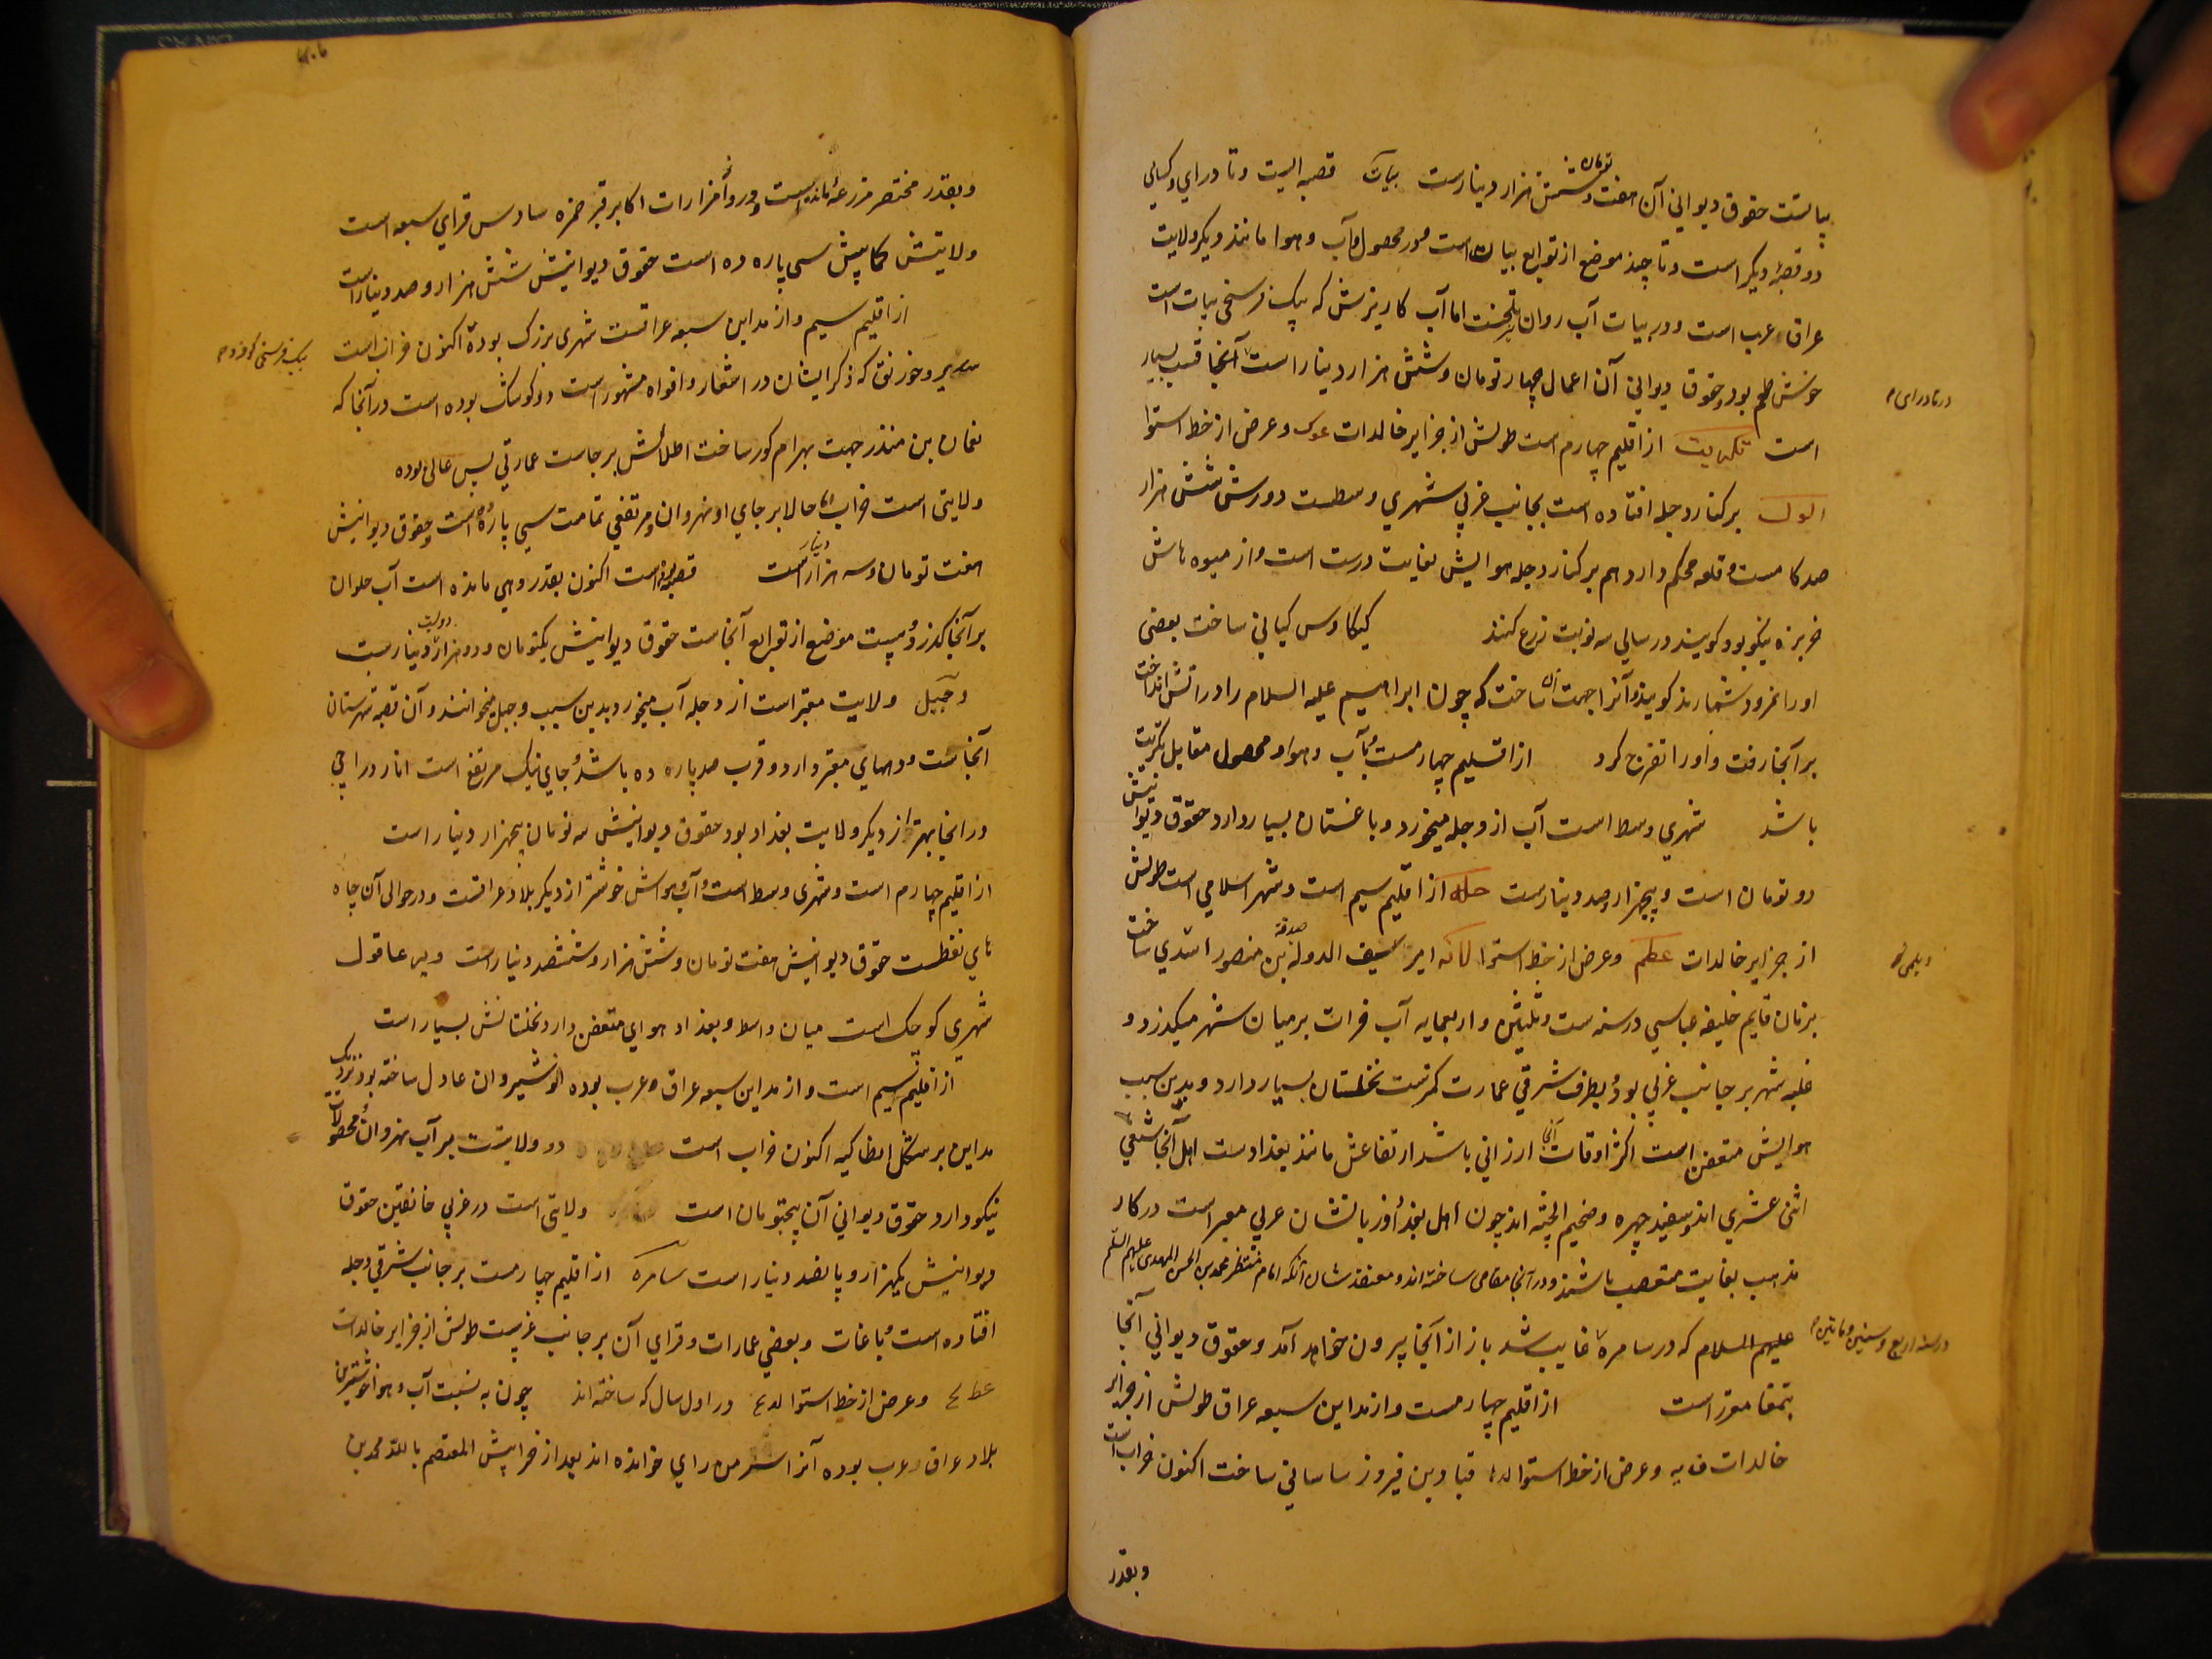 بیالتست حقوق دیوانی آن هفت تومان و شش هزار دینارست بیات قصبه ایست و تا درای و کسائی
دو قصبۀ دیگر است و تا چند موضع از توابع بیات است و در محصول و آب و هوا مانند دیگر ولایت
عراق عرب است و در بیات آب روان تلخست اما آب کاریزش که بیک فرسخی بیات است
خوش طعم بود و حقوق دیوانی آن اعمال چهار تومان و شش هزار دینار است آنجا قسب بسیار
در بادرای
است تکریت از اقلیم چهارم است طولش از جزایر خالدات و عرض از خط استوا
بر کنار دجله افتاده است بجانب غربی شهری وسطست دورش شش هزار
صد کامست و قلعه محکم دارد هم بر کنار دجله هوایش بغایت درست است و از میوه هاش
خربزه نیکو بود گویند در سالی سه نوبت زرع کنند کیکاوس کیانی ساخت بعضی
او را نمرود شمارند گویند آنرا جهت آن ساخت که چون ابراهیم علیه السلام را در آتش انداخت
بر آنجا رفت و او را تفرج کرد از اقلیم چهارمست و بآب و هوا و محصول مقابل تکریت
باشد شهری وسط است آب از دجله میخورد و باغستان بسیار دارد حقوق دیوانیش
دو تومان است و پنجهزار و صد دینارست حله از اقلیم سیم است و شهر اسلامی است طولش
از جزایر خالدات عطم و عرض از خط استوا امیر سیف الدوله صدقة بن منصور اسدی ساخت
دیلمی
بزمان قایم خلیفه عباسی در سنه ست و ثلثین و اربعمایه آب فرات بر میان شهر میگذرد و
غلبه شهر بر جانب غربی بود و بطرف شرقی عمارت کمترست نخلستان بسیار دارد و بدین سبب
هوایش متعفن است اکثر اوقات آنجا ارزانی باشد ارتفاعش مانند بغدادست اهل آنجا شیعی
اثنی عشری اند و سفید چهره و ضخیم الجثه اند چون اهل بغداد و زبانشان عربی مغیر است در کار
مذهب بغایت متعصب باشند و در آنجا مقامی ساخته اند و معتقدشان آنکه امام منتظر محمد بن الحسن المهدی علیهم السلم
علیهم السلام که در سامره غایب شد باز از آنجا بیرون خواهد آمد و حقوق دیوانی آنجا
در سنه اربع و ستین و ماتین
بتمغا مقرر است از اقلیم چهارمست و از مداین سبعه عراق طولش از جزایر
خالدات و عرض از خط استوا قباد بن فیروز ساسانی ساخت اکنون خراب است
و بقدر
و بقدر مختصر مزرعۀ مانده است و درو از مزارات اکابر قبر حمزه سادس قرای سبعه است
ولایتش کمابیش سی پاره ده است حقوق دیوانیش شش هزار و صد دینار است
از اقلیم سیم و از مداین سبعه عراقست شهری بزرگ بوده اکنون خراب است
بیک فرسنگی کوفه
سدیر و خورنق که ذکر ایشان در اشعار و افواه مشهور است دو کوشک بوده است در آنجا که
نعمان بن منذر جهت بهرام گور ساخت اطلالش برجاست عمارتی بس عالی بوده
ولایتی است خراب حالا بر جای او نهروان و مرتفعی تمامت سی پاره ده است و حقوق دیوانیش
هفت تومان و سه هزار دینار است قصبه بوده است اکنون بقدر دهی مانده است آب حلوان
بر آنجا گذرد و بیست موضع از توابع آنجاست حقوق دیوانیش یکتومان و دو هزار و دویست دینارست
دجیل ولایت معتبر است از دجله آب میخورد بدین سبب دجیل میخوانند و آن قصبه شهرستان
آنجاست و دیهای معتبر دارد و قرب صد پاره ده باشد و جای نیک مرتفع است انار دراجی
در آنجا بهتر از دیگر ولایت بغداد بود حقوق دیوانیش سه تومان پنجهزار دینار است
از اقلیم چهارم است و شهری وسط است و آب و هواش خوشتر از دیگر بلاد عراقست و در حوالی آن چاه
های نفطست حقوق دیوانیش هفت تومان و شش هزار و ششصد دینار است دیر عاقول
شهری کوچک است میان واسط و بغداد هوای متعفن دارد نخلستانش بسیار است
از اقلیم سیم است و از مداین سبعه عراق عرب بوده انوشیروان عادل ساخته بود نزدیک
مداین بر شکل انطاکیه اکنون خراب است دو ولایتست بر آب نهروان و محصولات
نیکو دارد حقوق دیوانی آن پنجتومان است ولایتی است در غربی خانقین حقوق
دیوانیش یکهزار و پانصد دینار است سامره از اقلیم چهارمست بر جانب شرقی دجله
افتاده است و باغات و بعضی عمارات و قرای آن بر جانب غربیست طولش از جزایر خالدات
و عرض از خط استوا در اول سال که ساخته اند چون به نسبت آب و هوا خوشترین
بلاد عراق عرب بوده آنرا سر من رای خوانده اند بعد از خرابیش المعتصم بالله محمد بن